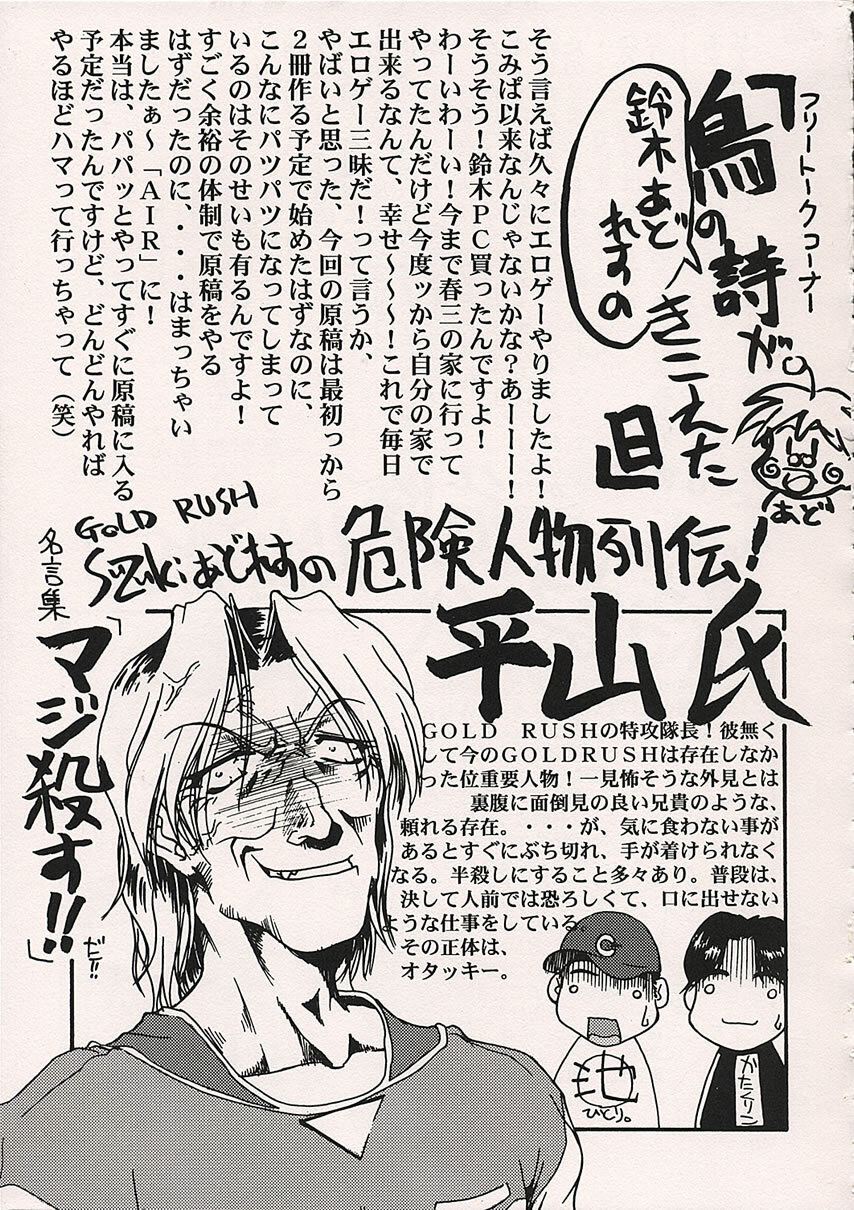 フリートークコーナー
「鳥の詩が。
きこえた
日」
鈴木あど
れすの
あど
そう言えば久々にエロゲーやりましたよ！
こみぱ以来なんじゃないかな？あーーー！
そうそう！鈴木ＰＣ買ったんですよ！
わーいわーい！今まで春三の家に行って
やってたんだけど今度ッから自分の家で
出来るなんて、幸せ～～～！これで毎日
エロゲー三昧だ！って言うか、
やばいと思った、今回の原稿は最初っから
２冊作る予定で始めたはずなのに、
こんなにパツパツになってしまって
いるのはそのせいも有るんですよ！
すごく余裕の体制で原稿をやる
はずだったのに、・・・はまっちゃい
ましたぁ～「ＡＩＲ」に！
本当は、パパッとやってすぐに原稿に入る
予定だったんですけど、どんどんやれば
やるほどハマって行っちゃって（笑）
GOLD RUSH
Suzukiあどれすの危険人物列伝！
平山氏
名言集
「マジ殺す!!」
だ!!
ＧＯＬＤ　ＲＵＳＨの特攻隊長！彼無く
して今のＧＯＬＤＲＵＳＨは存在しなか
った位重要人物！一見怖そうな外見とは
裏腹に面倒見の良い兄貴のような、
頼れる存在。・・・が、気に食わない事が
あるとすぐにぶち切れ、手が着けられなく
なる。半殺しにすること多々あり。普段は、
決して人前では恐ろしくて、口に出せない
ような仕事をしている。
その正体は、
オタッキー。
C
池
ひとり。
かたくりこ